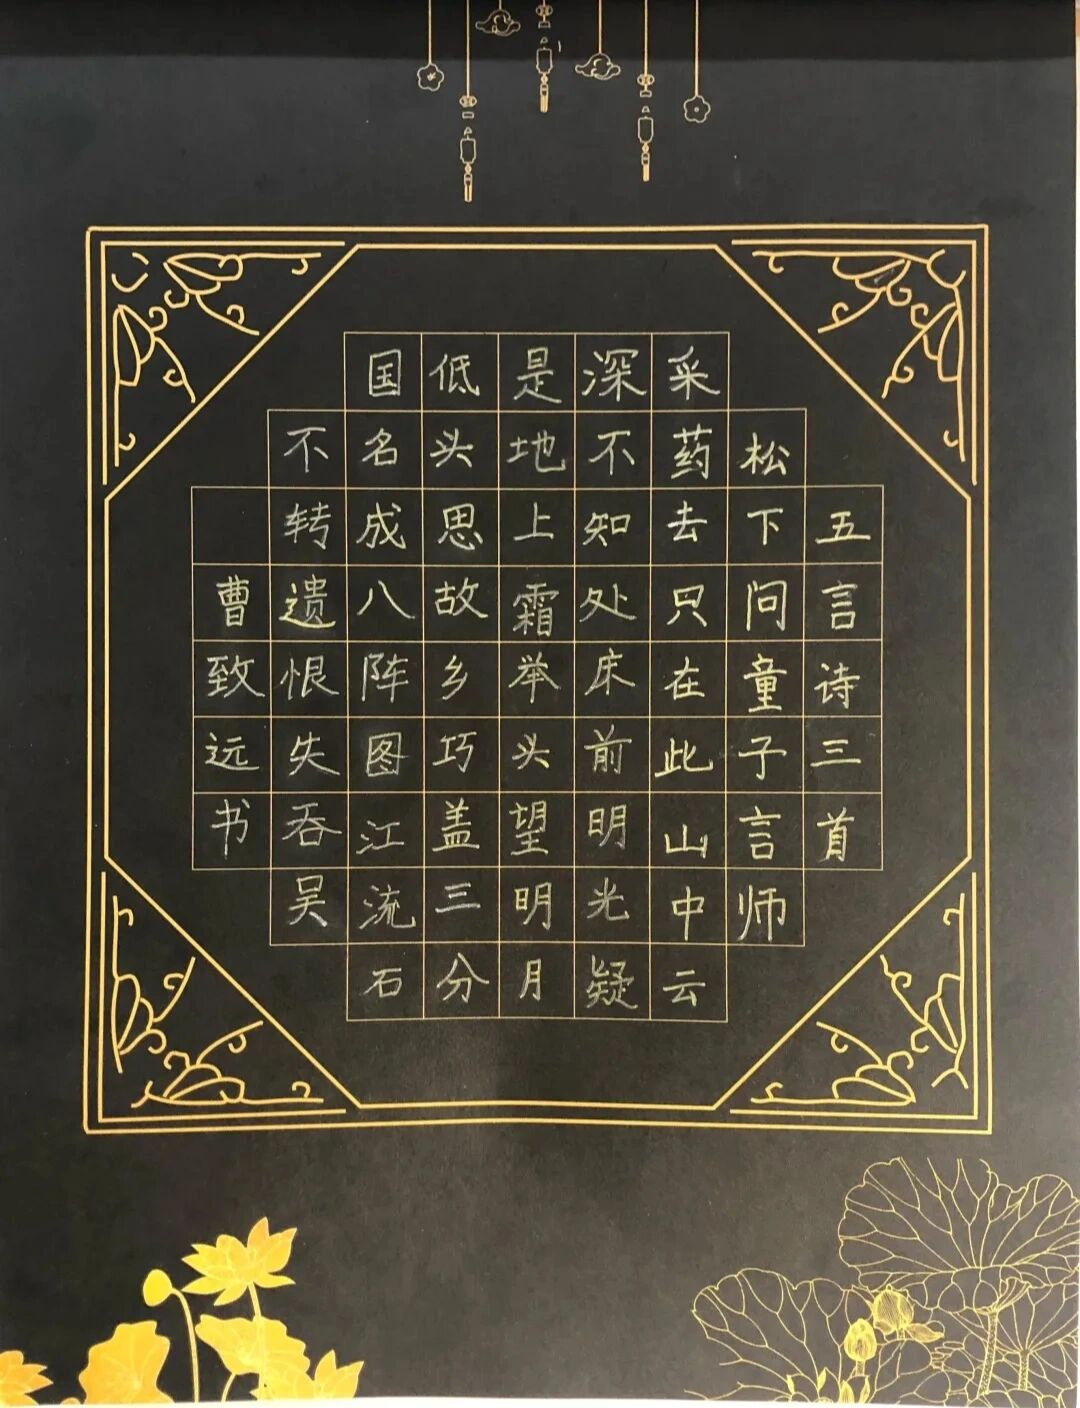 五言诗三首
松下问童子言师
采药去只在此山中云
深不知处床前明光疑
是地上霜举头望明月
低头思故乡巧盖三分
国名成八阵图江流石
不转遗恨失吞吴
曹致远书